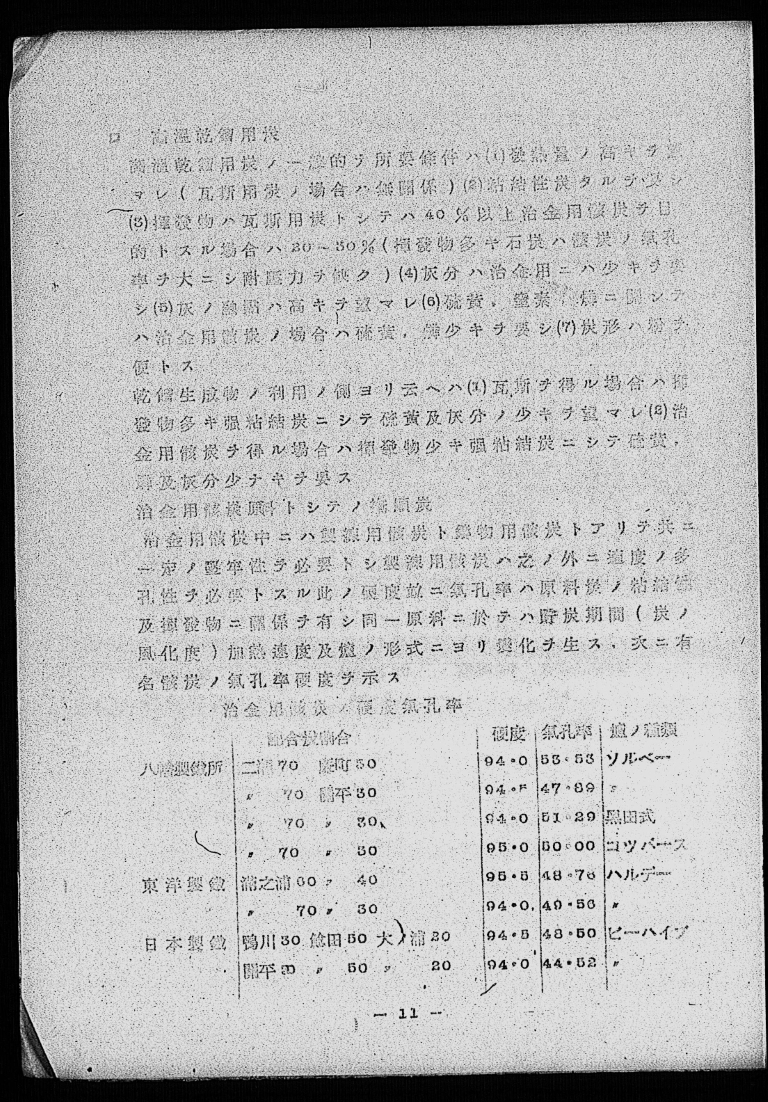 ロ 高溫乾餾用炭
高溫乾餾用炭ノ一般的ヲ所要條件ハ(1)發熱量ノ高キヲ
マレ(瓦斯用炭ノ場合ハ無關係)(2)粘結性炭タルヲ要シ
(3)揮發物ハ瓦斯用炭トシテハ40%以上治金用骸炭ヲ目
的トスル場合ハ20~30%(揮發物多キ石炭ハ骸炭ノ氣孔
率ヲ大ニシ耐壓力ヲ缺ク)(4)灰分ハ治金用ニハ少キヲ要
シ(5)灰ノ融點ハ高キヲ望マレ(6)硫黄、窒素、燐ニ關シテ
ハ治金用骸炭ノ場合ハ硫黄、燐少キヲ要シ(7)炭形ハ粉ヲ
便トス
乾餾生成物ノ利用ノ側ヨリ云ヘハ(1)瓦斯ヲ得ル場合ハ揮
發物多キ强粘結炭ニシテ硫黄及灰分ノ少キヲ望マレ(2)治
金用骸炭ヲ得ル場合ハ揮發物少キ强粘結炭ニシテ硫黄、
燐及灰分少ナキヲ要ス
治金用骸炭原料トシテノ撫順炭
治金用骸炭中ニハ製鍊用骸炭ト鑄物用骸炭トアリテ共ニ
一定ノ堅牢性ヲ必要トシ製鍊用骸炭ハ之ノ外ニ適度ノ多
孔性ヲ必要トスル此ノ硬度竝ニ氣孔率ハ原料炭ノ粘結性
及揮發物ニ關係ヲ有シ同一原料ニ於テハ貯炭期間(炭ノ
風化度)加熱速度及爐ノ形式ニヨリ變化ヲ生ス、次ニ有
名骸炭ノ氣孔率硬度ヲ示ス
治金用骸炭ノ硬度氣孔率
配合炭割合 硬度 氣孔率 爐ノ種類
八幡製鐵所 二瀨70 鹿町30 94.0 53.53 ソルベー
〃 70 開平30 94. 47.89 〃
〃 70 〃 30 94.0 51.29 黒田式
〃 70 〃 30 95.0 50.00 コツパース
東洋製鐵 浦之浦60 〃 40 95.5 48.76 ハルデー
〃 70 〃 30 94.0 49.56 〃
日本製鐵 鴨川30 飯田50 大ノ浦20 94.5 48.50 ビーハイブ
開平30 〃 50 〃 20 94.0 44.52 〃
— 11 —